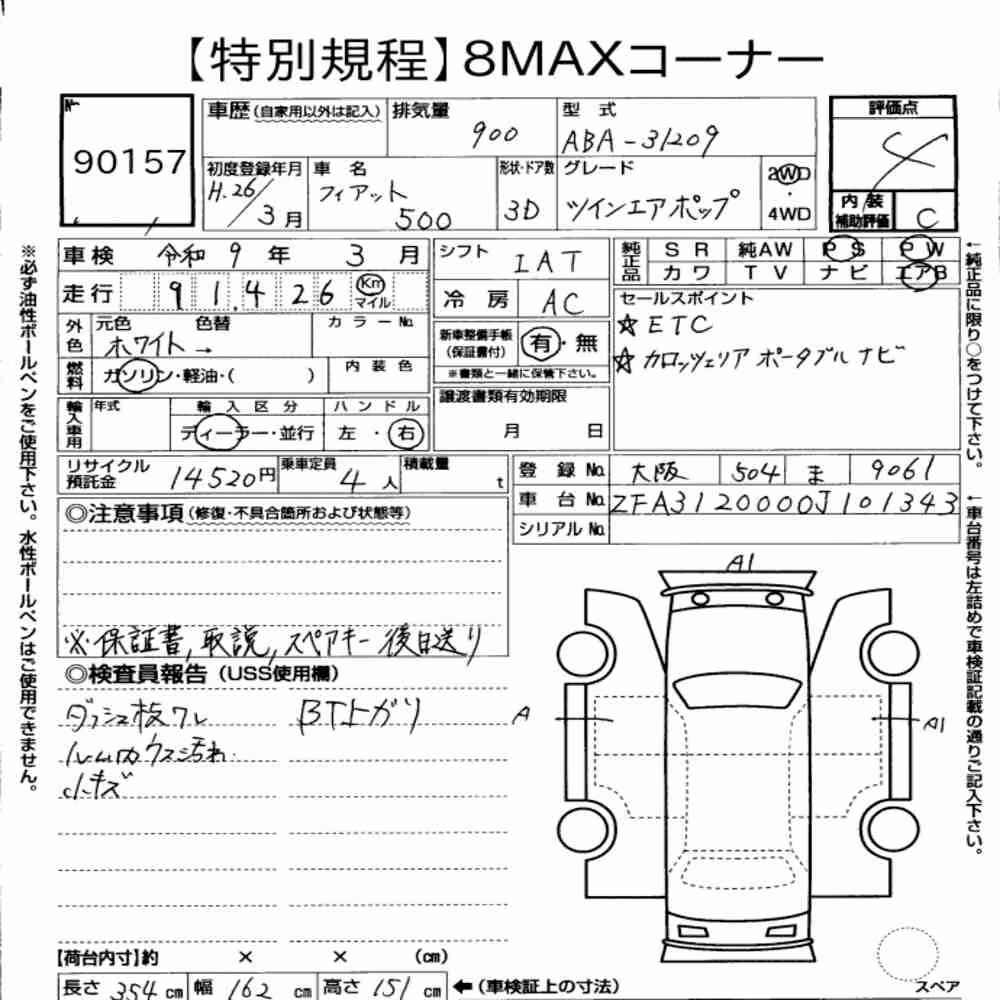 【特別規程】8MAXコーナー
№
90157
車歴(自家用以外は記入)
排気量
900
型 式
ABA-31209
評価点
4
初度登録年月
H.26/3月
車 名
フィアット
500
形状・ドア数
3D
グレード
ツインエアポップ
2WD
・
4WD
内 装
補助評価
C
車検 令和 9 年 3 月
走行 91,426 Km マイル
外色
元色 色替
ホワイト→
カラーNo.
燃料
ガソリン・軽油・( )
内装色
輸入車用
年式
輸入区分
ディーラー・並行
ハンドル
左・右
シフト
IAT
冷房
AC
新車整備手帳
(保証書付)
有・無
※書類と一緒に保管下さい。
譲渡書類有効期限
月 日
純正品
SR 純AW PS PW
カワ TV ナビ エアB
セールスポイント
☆ETC
☆カロッツェリア ポータブルナビ
リサイクル
預託金
14520円
乗車定員
4人
積載量
t
登録No. 大阪 504 ま 9061
車台No. ZFA3120000J101343
シリアルNo.
◎注意事項(修復・不具合箇所および状態等)
※保証書,取説,スペアキー後日送り
◎検査員報告(USS使用欄)
ダッシュ板ワレ
BT上ガリ
ルーム内ウス汚れ
小キズ
A1
A
A1
【荷台内寸】約 × × (cm)
長さ 354 cm 幅 162 cm 高さ 151 cm ←(車検証上の寸法)
スペア
※必ず油性ボールペンをご使用下さい。水性ボールペンはご使用できません。
←純正品に限り○をつけて下さい。
←車台番号は左詰めで車検証記載の通りご記入下さい。